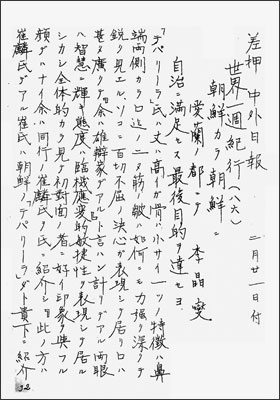 差押 中外日報 二月廿一日付
世界一週紀行(八六)
朝鮮カラ朝鮮ニ
愛蘭ノ都ニテ 李晶燮
自治ニ満足セス最後目的ヲ達セヨ
「デバリーラ」氏ハ丈ハ高イガ骨ハ小サイ一ツノ特徴ハ鼻
端両側カラ口迄ノ二ツノ筋ノ皺ハ如何ニモ力強ク深ク
鋭ク見エルソコニ百切不屈ノ決心ガ表現シテ居リ口ハ
甚タ廣ク「余ハ雄辯家デアル」ト言ハン計リデアル両眼
ハ智慧ニ輝キ態度ハ臨機應変的敏捷性ヲ表現シテ居ル
シカシ全体的カラ見テ初対面ノ者ニ好イ印象ヲ與フル
顔デハナイ余ハ同行ノ崔麟氏ヲ氏ニ紹介シ「此ノ方ハ
崔麟氏デアル崔氏ハ朝鮮ノ「デバリーラ」ダト貴下ニ紹介